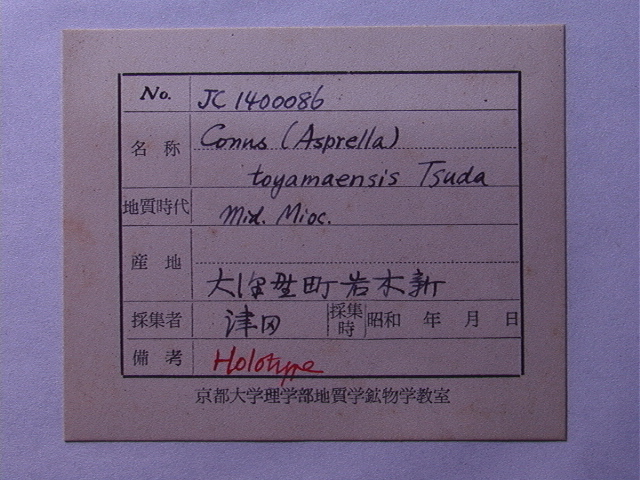 No. JC 1400086
名称 Conus (Asprella)
toyamaensis Tsuda
地質時代 Mid. Mioc.
産地
大沢野町岩木新
採集者 津田 採集時 昭和 年 月 日
備考 Holotype
京都大学理学部地質学鉱物学教室